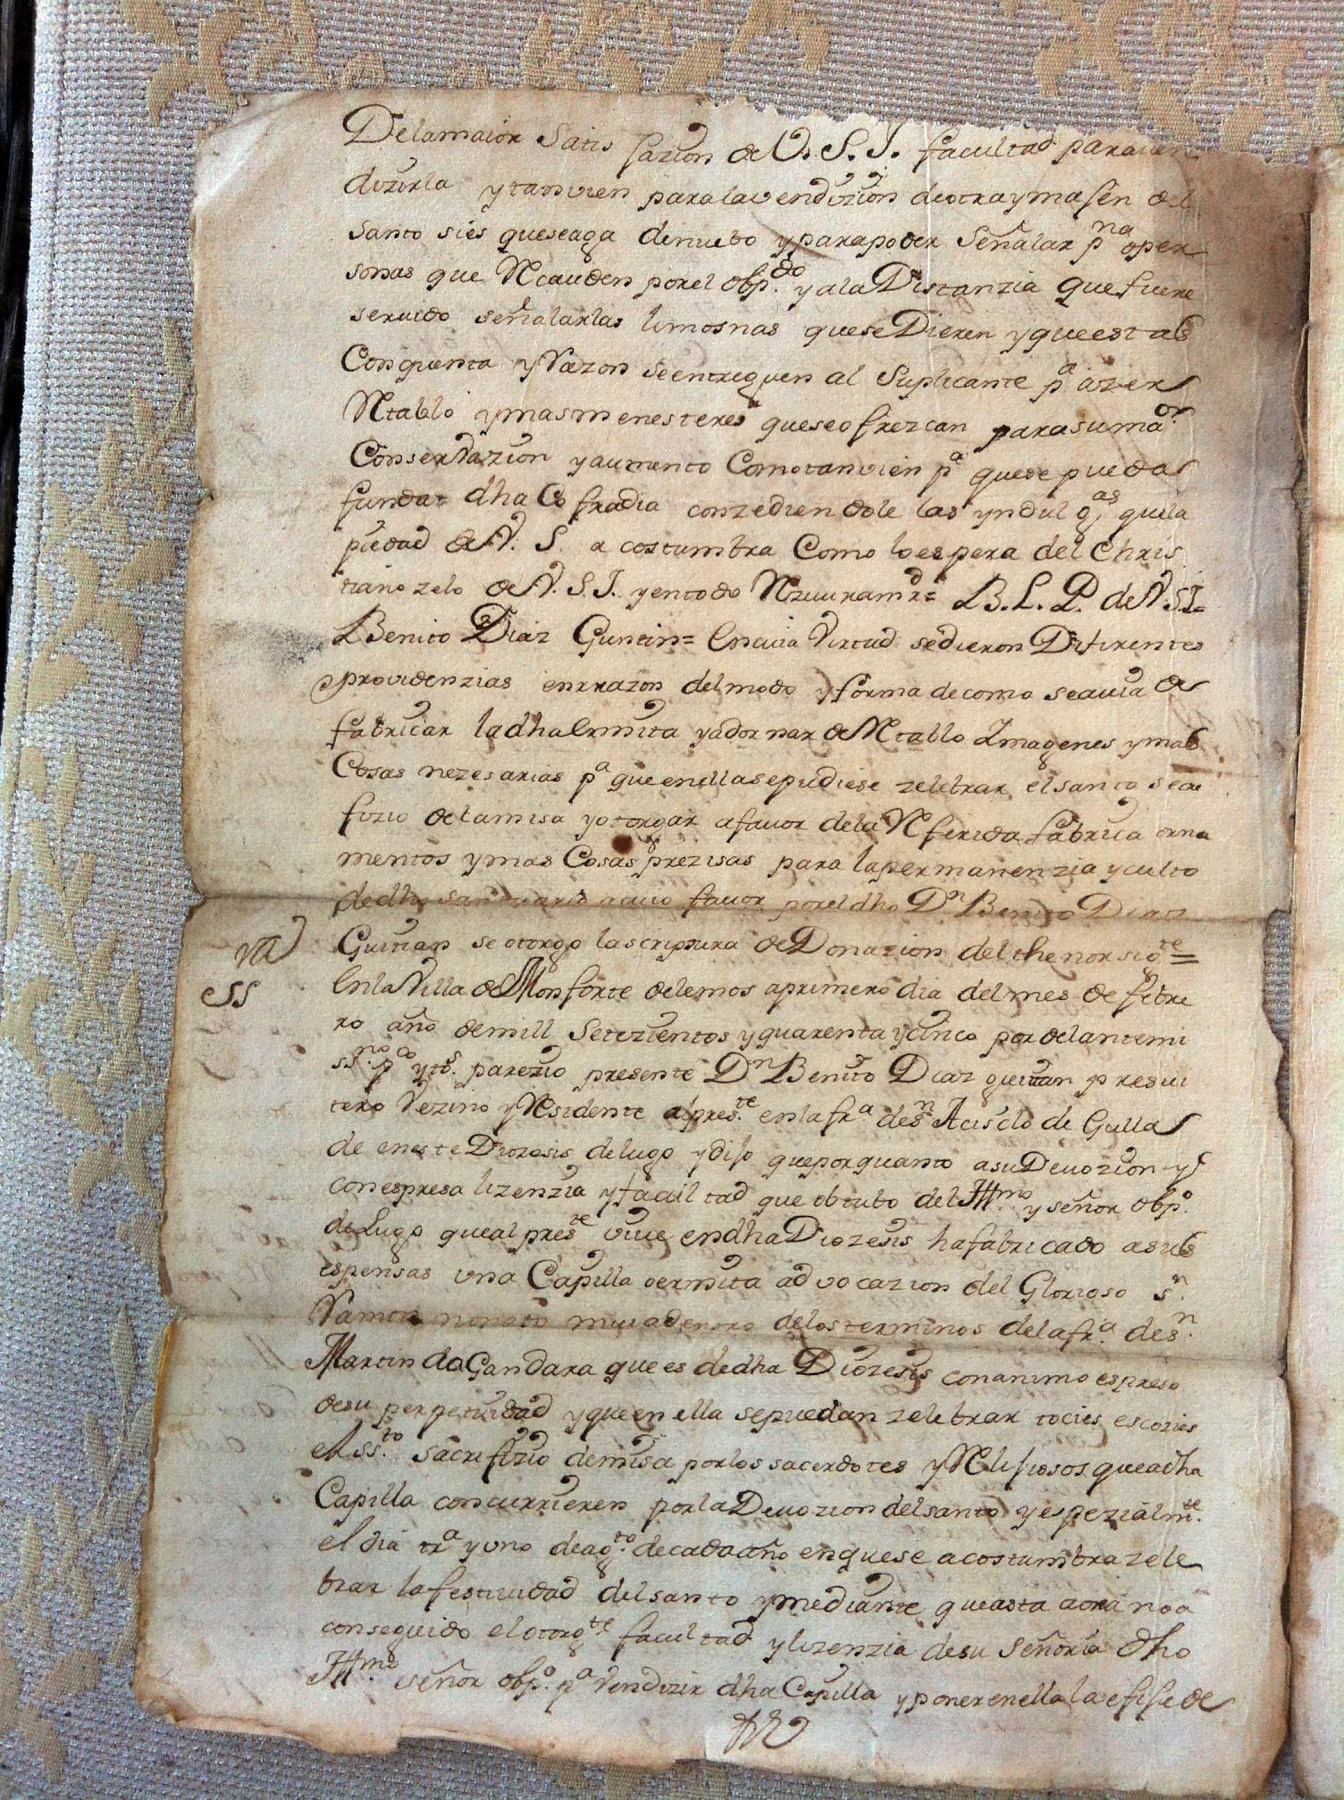 Delamaior Satis fazion de V. S. I. facultad paraven
dizirla ytanvien paralavendizion deotraymasen del
santo sies queseaga denuebo yparapoder Señalar pna oper
sonas que Recauden porel obp.do yalaDistanzia que fuere
seruido señalarlas limosnas queseDieren yqueestas
Conquenta yRazon seentreguen al Suplicante pa azer
Retablo ymasmenesteres queseofrezcan parasumaor
Conserbazion yaumento Comotanvien pa quese pueda
fundar dha Cofradia conzediendole las yndulg.as quela
piedad de V. S. acostumbra Como loespera del Chris
tiano zelo de V. S. I. yentodo Rzuuiramrd= B. L. P. de V. S. I=
Benito Diaz Guntin= Encuia Virtud sedieron Difirentes
providenzias enrrazon delmodo yforma decomo seauia de
fabricar ladhaErmita yadornar deRetablo Imagenes ymas
Cosas nezesarias pa queenellasepudiese zelebrar elsanto sacri
fizio delamisa yotorgar afauor delaReferida fabrica orna
mentos ymas Cosas prezisas para lapermanenzia yculto
dedho santuario acuio fauor poreldho Dn Benito Diaz
Guitian seotorgo lascriptura deDonazion delthenorsigte=
EnlaVilla deMonforte delemos aprimero dia delmes de febre
ro año demill Setezientos yquarenta ycinco por delantemi
ss.no pco yts. parezio presente Dn Benito Diaz guitian presui
tero Vezino yResidente alpres.te enlafra desn Acisclo de Gulla
de eneste Diozesis delugo ydijo queporquanto asuDeuozion y
conespresa lizenzia yfacultad que obtubo del Illmo y señor obpo.
deLugo quealpreste viue endhaDiozesis hafabricado asus
espensas vna Capilla oermita aduocazion del Glorioso sn.
Ramon nonato mui adentro delosterminos delafra desn.
Martin daGandara que es dedha Diozesis conanimo espreso
desu perpetuidad yqueenella sepuedan zelebrar
elssto. sacrifizio demisa porlos sacerdotes yRelijiosos queadha
Capilla concurrieren porlaDeuozion delsanto yespezialmte.
eldia tra yuno deagto. decadaaño enquese acostumbrazele
brar lafestiuidad delsanto ymediante queasta aora noa
conseguido elotorgte facultad ylizenzia desu Señoria dho
Illmo señor obpo. pa Vendizir dhaCapilla yponerenella laefijede